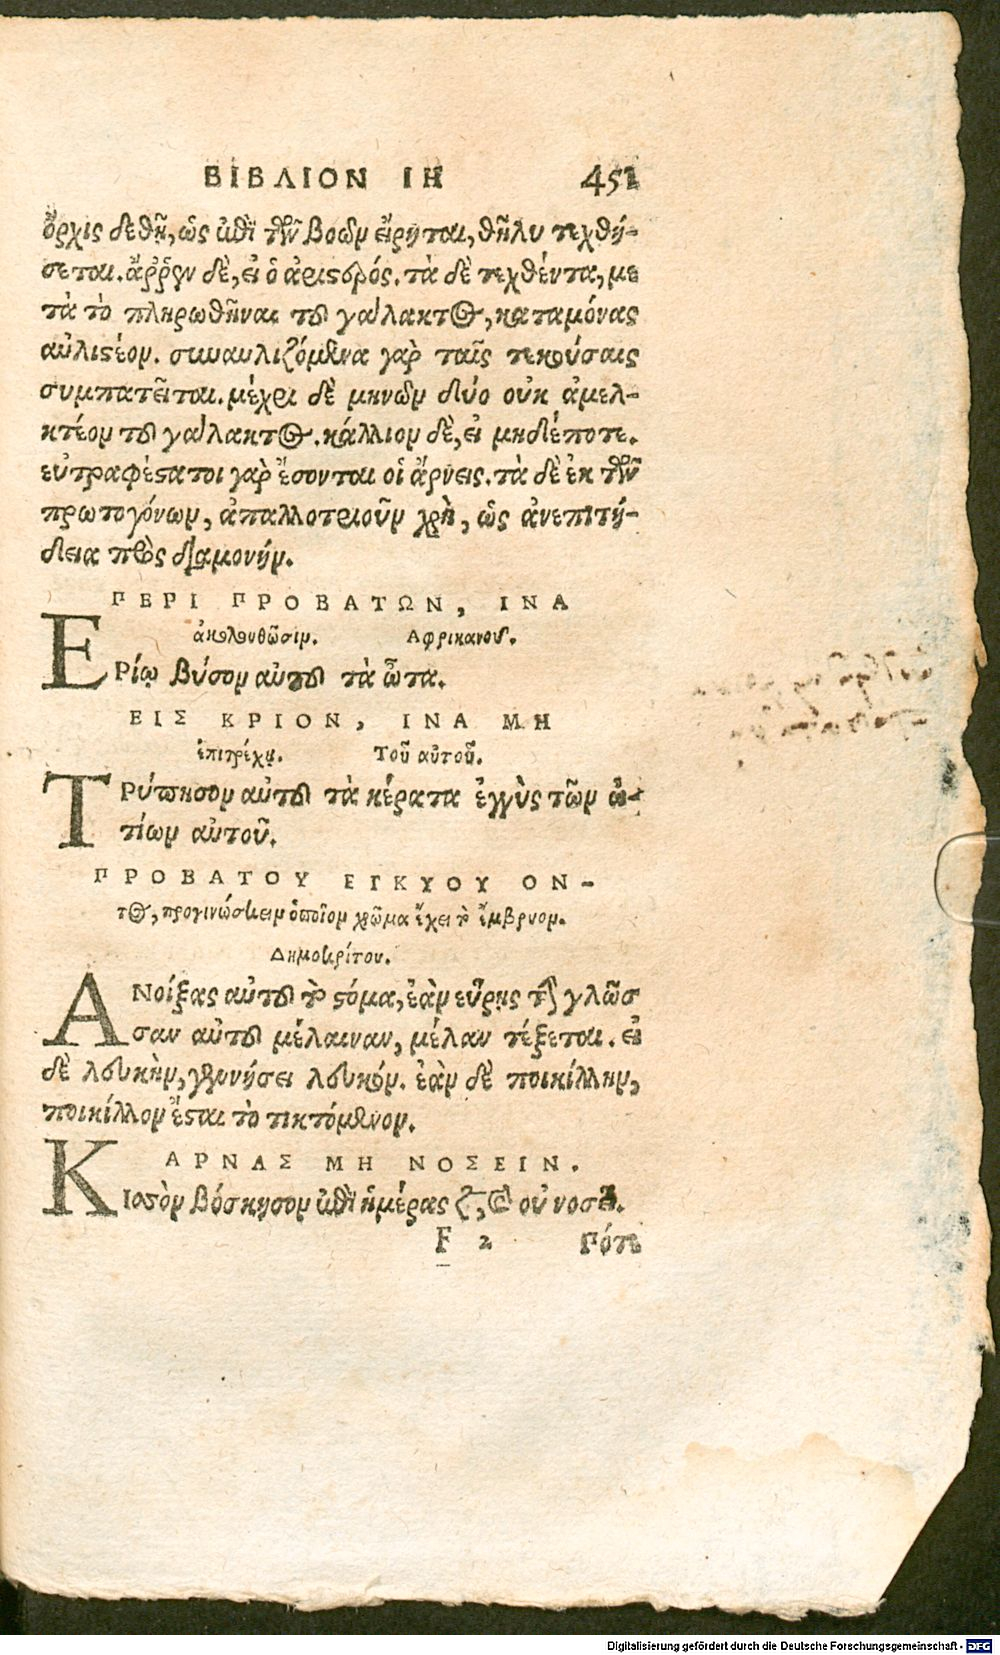 ΒΙΒΛΙΟΝ ΙΗ 451
ὄρχις δεθῇ, ὡς ἐπὶ τῶν βοῶν εἴρηται, θῆλυ τεχθή-
σεται. ἄῤῥεν δὲ, εἰ ὁ ἀριστερός. τὰ δὲ τεχθέντα, με
τὰ τὸ πληρωθῆναι τοῦ γάλακτος, καταμόνας
αὐλιστέον. συναυλιζόμενα γὰρ ταῖς τεκούσαις
συμπατεῖται. μέχρι δὲ μηνῶν δύο οὐκ ἀμελ-
κτέον τοῦ γάλακτος. κάλλιον δὲ, εἰ μηδέποτε.
εὐτραφέστατοι γὰρ ἔσονται οἱ ἄρνεις. τὰ δὲ ἐκ τῶν
πρωτογόνων, ἀπαλλοτριοῦν χρὴ, ὡς ἀνεπιτή-
δεια πρὸς διαμονήν.
ΠΕΡΙ ΠΡΟΒΑΤΩΝ, ΙΝΑ
ἀκολουθῶσιν. Αφρικανοῦ.
ΕΡίῳ βύσον αὐτοῦ τὰ ὦτα.
ΕΙΣ ΚΡΙΟΝ, ΙΝΑ ΜΗ
ἐπιτρέχῃ. Τοῦ αὐτοῦ.
ΤΡύπησον αὐτοῦ τὰ κέρατα ἐγγὺς τῶν ὠ-
τίων αὐτοῦ.
ΠΡΟΒΑΤΟΥ ΕΓΚΥΟΥ ΟΝ-
τος, προγινώσκειν ὁποῖον χρῶμα ἔχει τὸ ἔμβρυον.
Δημοκρίτου.
ΑΝοίξας αὐτοῦ τὸ στόμα, ἐὰν εὕρῃς τὴν γλῶσ
σαν αὐτοῦ μέλαιναν, μέλαν τέξεται. εἰ
δὲ λευκὴν, γεννήσει λευκόν. ἐὰν δὲ ποικίλλην,
ποικίλλον ἔσται τὸ τικτόμενον.
ΑΡΝΑΣ ΜΗ ΝΟΣΕΙΝ.
ΚΙσσὸν βόσκησον ἐπὶ ἡμέρας ζ, καὶ οὐ νοσεῖ.
F 2 Πότε
Digitalisierung gefördert durch die Deutsche Forschungsgemeinschaft - DFG